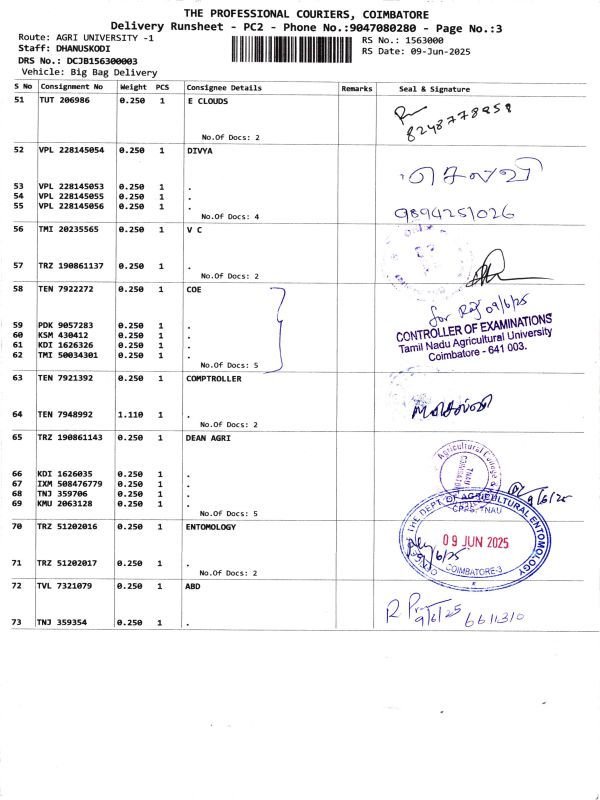 THE PROFESSIONAL COURIERS, COIMBATORE
Delivery Runsheet - PC2 - Phone No.:9047080280 - Page No.:3
Route: AGRI UNIVERSITY -1
RS No.: 1563000
Staff: DHANUSKODI
RS Date: 09-Jun-2025
DRS No.: DCJB156300003
Vehicle: Big Bag Delivery
S No Consignment No Weight PCS Consignee Details Remarks Seal & Signature
51 TUT 206986 0.250 1 E CLOUDS
8248778958
No.Of Docs: 2
52 VPL 228145054 0.250 1 DIVYA
செல்வி
53 VPL 228145053 0.250 1 .
54 VPL 228145055 0.250 1 .
55 VPL 228145056 0.250 1 .
9894251026
No.Of Docs: 4
56 TMI 20235565 0.250 1 V C
57 TRZ 190861137 0.250 1 .
No.Of Docs: 2
58 TEN 7922272 0.250 1 COE
for Raj 09/6/25
59 PDK 9057283 0.250 1 .
60 KSM 430412 0.250 1 .
61 KDI 1626326 0.250 1 .
62 TMI 50034301 0.250 1 .
CONTROLLER OF EXAMINATIONS
Tamil Nadu Agricultural University
Coimbatore - 641 003.
No.Of Docs: 5
63 TEN 7921392 0.250 1 COMPTROLLER
64 TEN 7948992 1.110 1 .
No.Of Docs: 2
65 TRZ 190861143 0.250 1 DEAN AGRI
Agricultural College &
TNAU
66 KDI 1626035 0.250 1 .
67 IXM 508476779 0.250 1 .
68 TNJ 359706 0.250 1 .
69 KMU 2063128 0.250 1 .
9/6/25
No.Of Docs: 5
70 TRZ 51202016 0.250 1 ENTOMOLOGY
THE DEPT. OF AGRICULTURAL ENTOMOLOGY
CPPS, TNAU
09 JUN 2025
9/6/25
COIMBATORE-3
71 TRZ 51202017 0.250 1 .
No.Of Docs: 2
72 TVL 7321079 0.250 1 ABD
9/6/25 6611310
73 TNJ 359354 0.250 1 .